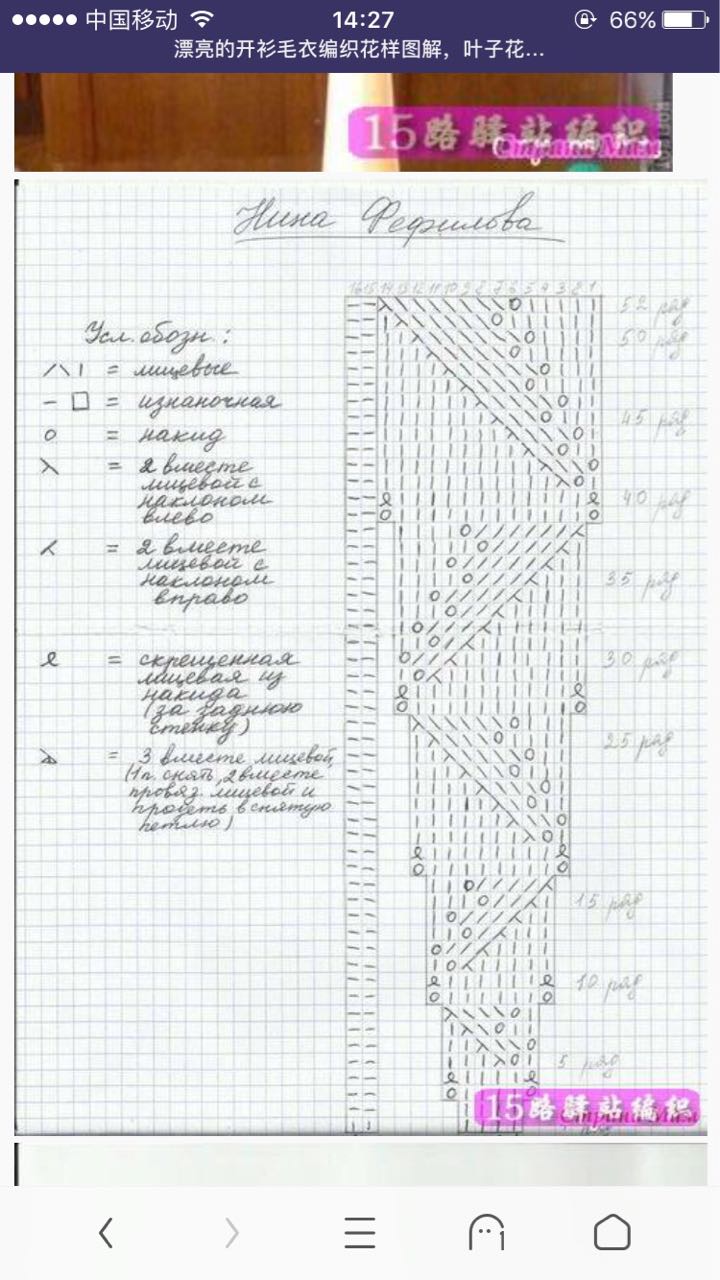 中国移动 14:27 66%
漂亮的开衫毛衣编织花样图解，叶子花...
15路驿站编织
Страна Мам
Нина Фефилова
16 15 14 13 12 11 10 9 8 7 6 5 4 3 2 1
Усл. обозн.:
/ \ | = лицевые
– □ = изнаночная
о = накид
= 2 вместе
лицевой с
наклоном
влево
= 2 вместе
лицевой с
наклоном
вправо
= скрещенная
лицевая из
накида
(за заднюю
стенку)
= 3 вместе лицевой,
(1 п. снять, 2 вместе
провяз. лицевой и
продеть в снятую
петлю)
52 ряд
50 ряд
45 ряд
40 ряд
35 ряд
30 ряд
25 ряд
15 ряд
10 ряд
5 ряд
15路驿站编织
Страна Мам
1